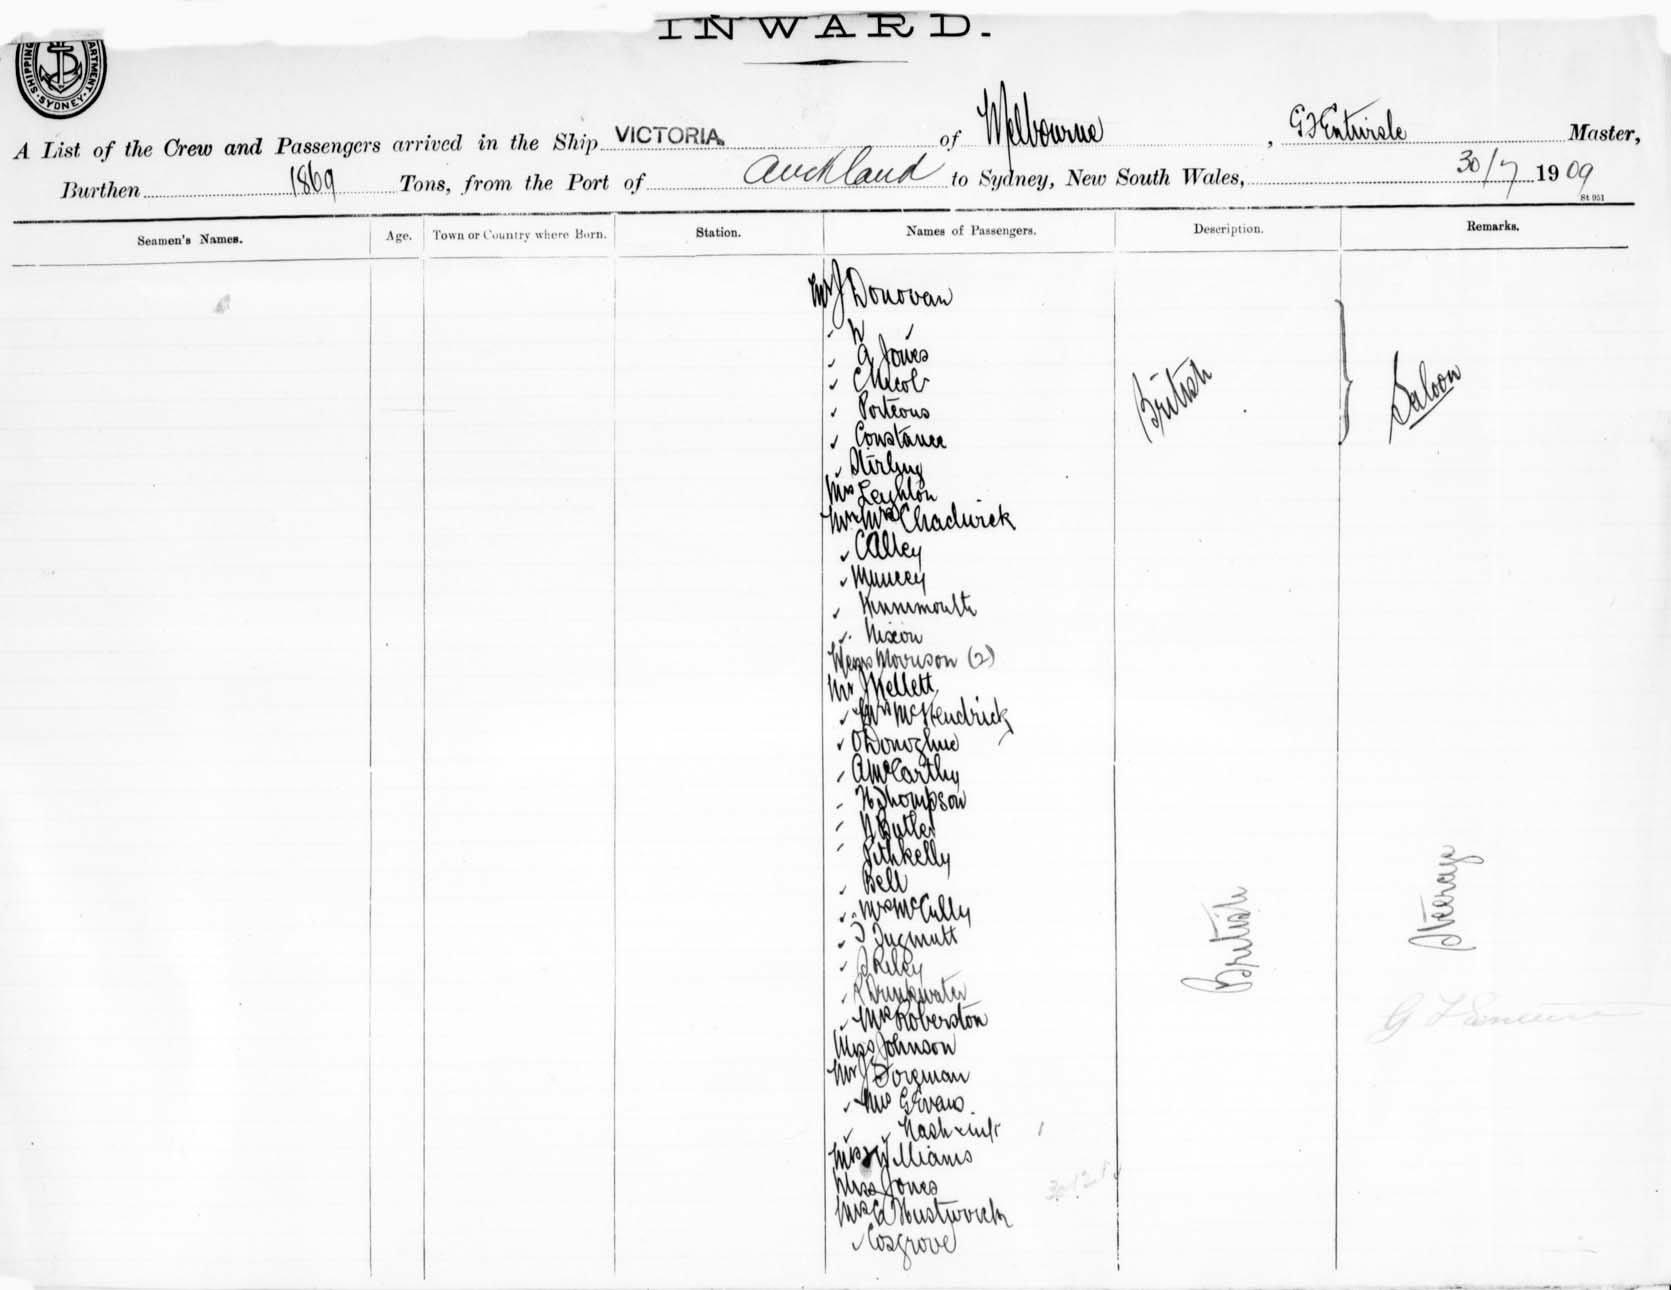 INWARD.
SHIPPING DEPARTMENT SYDNEY
A List of the Crew and Passengers arrived in the Ship VICTORIA. of Melbourne, G F Entwisle Master,
Burthen 1869 Tons, from the Port of Auckland to Sydney, New South Wales, 30/7 1909
St 951
Seamen's Names. Age. Town or Country where Born. Station. Names of Passengers. Description. Remarks.
Mr J Donovan
W
A Jones
C Nicol
Porteous
Constance
Stirling
British
Saloon
Mrs Leighton
Mr Mrs Chadwick
C Alley
Muncey
Kinnimouth
Nixon
Messrs Morrison (2)
Mr J Kellett
Mrs McKendrick
O'Donoghue
A McCarthy
H Thompson
Butler
Bell
Mrs McCully
British
Steerage
J Riley
R Drinkwater
Mrs Roberston
G F
Miss Johnson
Mr J
Mrs G Evans
Nash & inft
Williams
Miss Jones
Mrs
Cosgrove